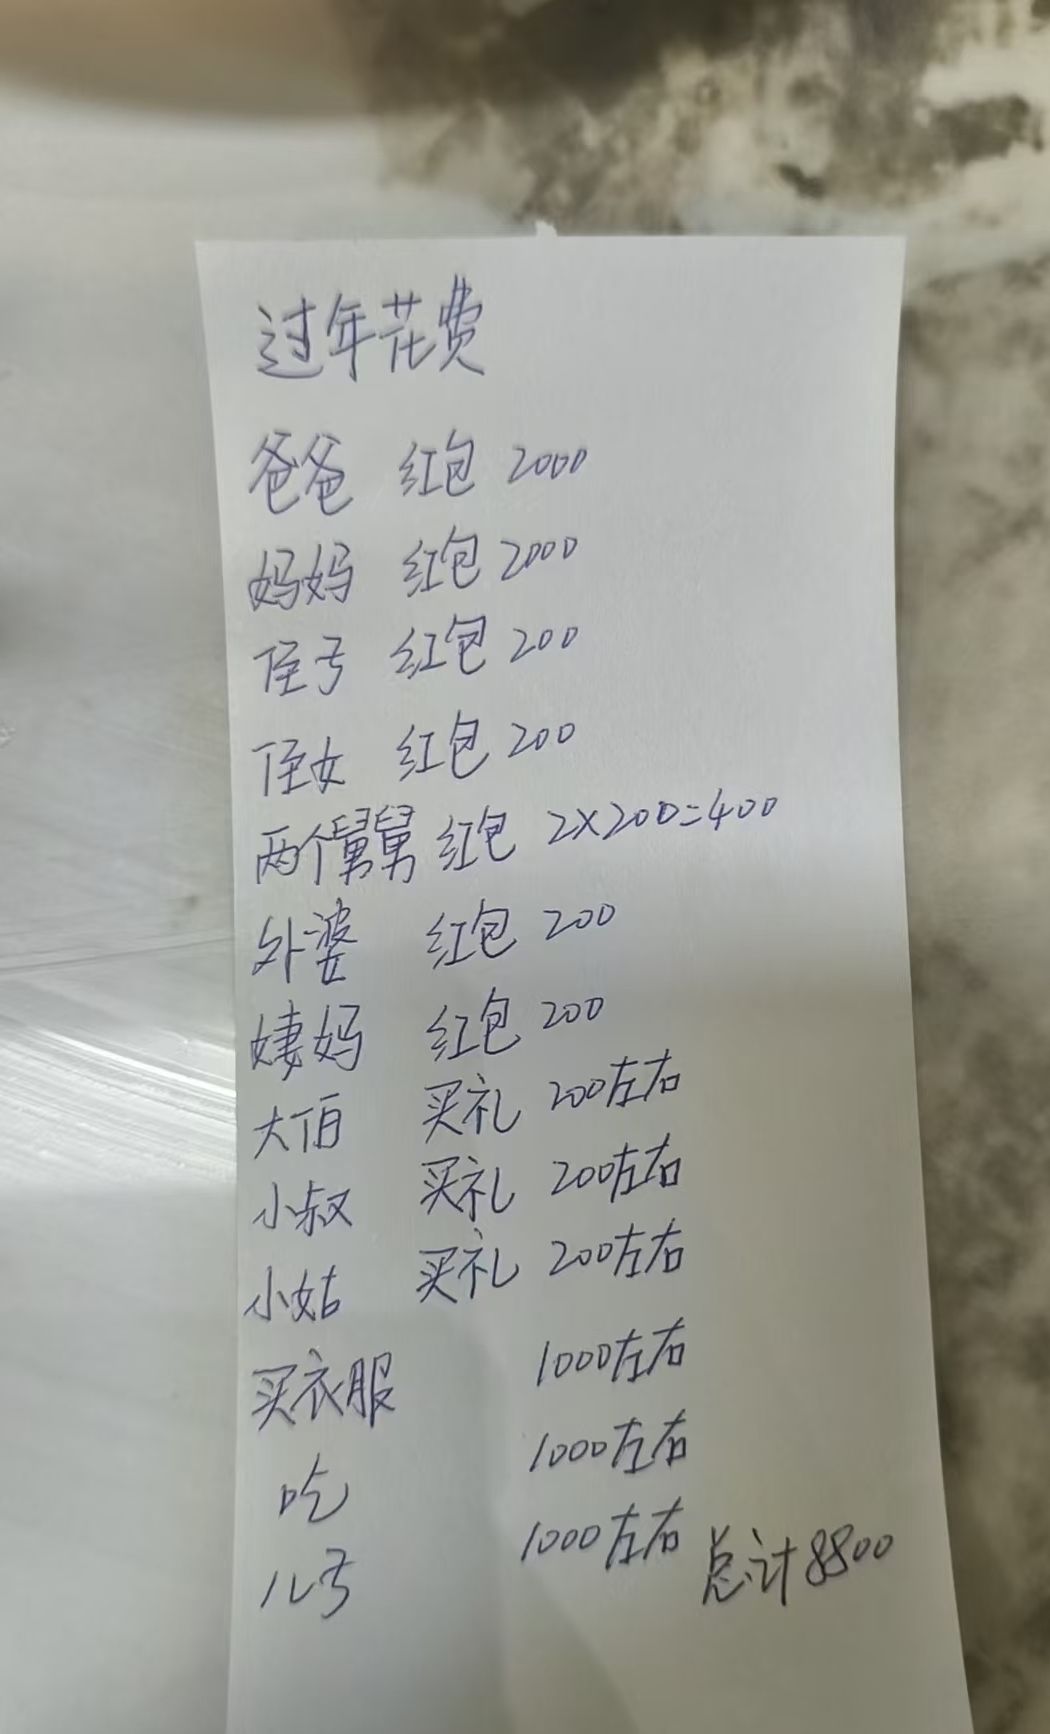 过年花费
爸爸 红包 2000
妈妈 红包 2000
侄子 红包 200
侄女 红包 200
两个舅舅 红包 2×200=400
外婆 红包 200
姨妈 红包 200
大伯 买礼 200左右
小叔 买礼 200左右
小姑 买礼 200左右
买衣服 1000左右
吃 1000左右
儿子 1000左右 总计8800